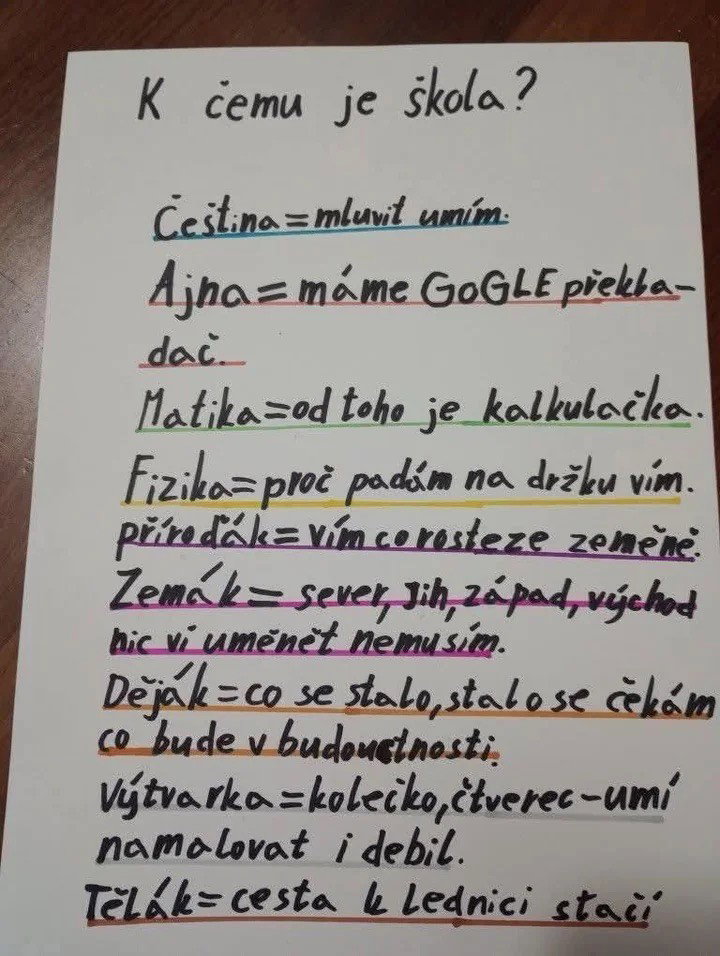 K čemu je škola?
Čeština=mluvit umím.
Ajna=máme GoGLE překla-
dač.
Matika=od toho je kalkulačka.
Fizika=proč padám na držku vím.
příroďák=vím co rosteze zeměně.
Zemák= sever, jih, západ, východ
nic ví uměnět nemusím.
Děják=co se stalo, stalo se čekám
co bude v budouctnosti.
Výtvarka=kolečko, čtverec-umí
namalovat i debil.
Tělák=cesta k lednici stačí